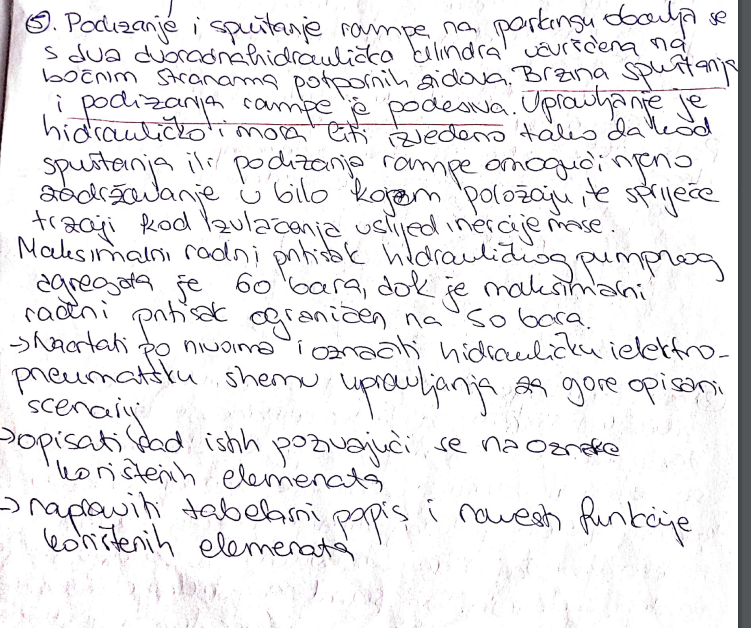 5. Podizanje i spuštanje rampe na parkingu obavlja se
s dva dvoradna hidraulička cilindra učvršćena na
bočnim stranama potpornih zidova. Brzina spuštanja
i podizanja rampe je podesiva. Upravljanje je
hidrauličko i mora biti izvedeno tako da kod
spuštanja ili podizanja rampe omogući njeno
zadržavanje u bilo kojem položaju, te spriječe
trzaji kod izvlačenja uslijed inercije mase.
Maksimalni radni pritisak hidrauličkog pumpnog
agregata je 60 bara, dok je maksimalni
radni pritisak ograničen na 50 bara.
→ Nacrtati po nivoima i označiti hidrauličku i elektro-
pneumatsku shemu upravljanja za gore opisani
scenarij
→ opisati rad istih pozivajući se na oznake
korištenih elemenata
→ napraviti tabelarni popis i navesti funkcije
korištenih elemenata